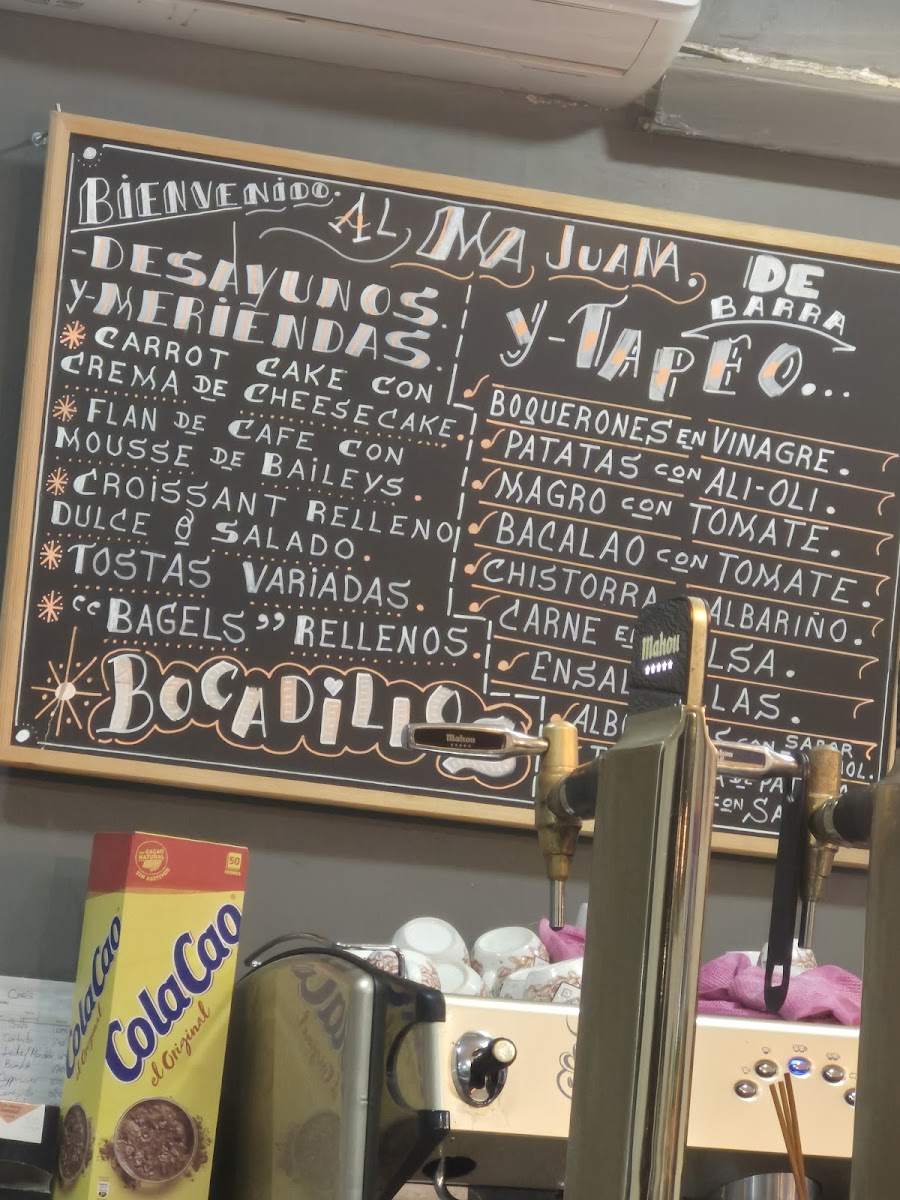 BIENVENIDO. AL MA JUANA.
-DESAYUNOS.
Y-MERIENDAS.
* CARROT CAKE CON
CREMA DE CHEESECAKE.
* FLAN DE CAFE CON
MOUSSE DE BAILEYS.
* CROISSANT RELLENO
DULCE O SALADO.
* TOSTAS VARIADAS.
* "BAGELS" RELLENOS.
BOCADILLOS
DE
BARRA
Y-TAPEO...
BOQUERONES EN VINAGRE.
PATATAS CON ALI-OLI.
MAGRO CON TOMATE.
BACALAO CON TOMATE.
CHISTORRA ALBARIÑO.
CARNE
CON SABOR
CON
Mahou
Mahou
CACAO
NATURAL
50
ColaCao
el Original
ColaCao
el Original